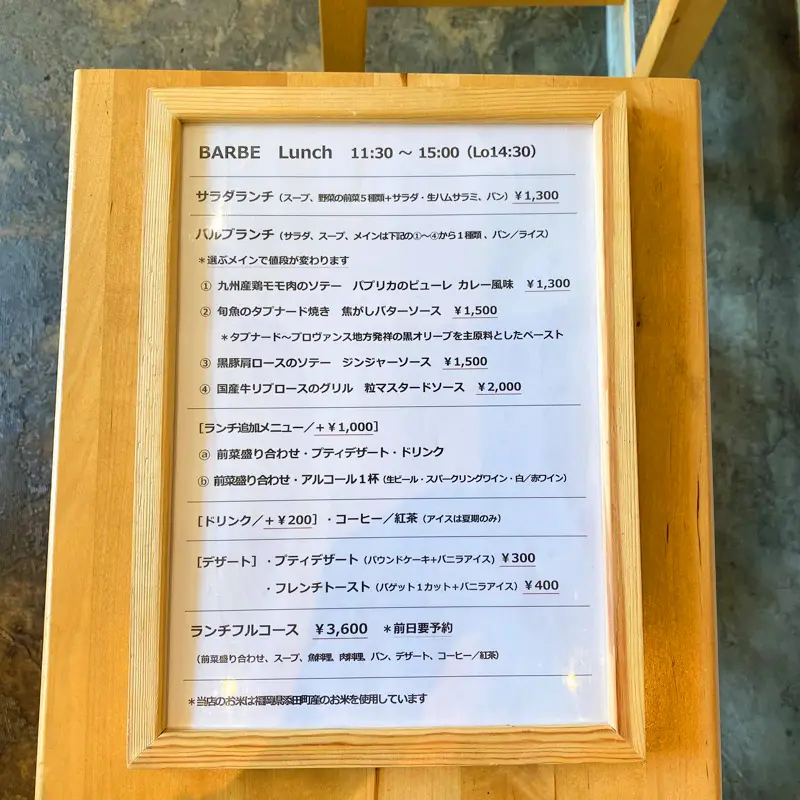 BARBE Lunch 11:30 ～ 15:00（Lo14:30）
サラダランチ（スープ、野菜の前菜５種類＋サラダ・生ハムサラミ、パン）￥1,300
バルブランチ（サラダ、スープ、メインは下記の①～④から１種類、パン／ライス）
＊選ぶメインで値段が変わります
① 九州産鶏モモ肉のソテー パプリカのピューレ カレー風味 ￥1,300
② 旬魚のタプナード焼き 焦がしバターソース ￥1,500
＊タプナード～プロヴァンス地方発祥の黒オリーブを主原料としたペースト
③ 黒豚肩ロースのソテー ジンジャーソース ￥1,500
④ 国産牛リブロースのグリル 粒マスタードソース ￥2,000
［ランチ追加メニュー／＋￥1,000］
ⓐ 前菜盛り合わせ・プティデザート・ドリンク
ⓑ 前菜盛り合わせ・アルコール１杯（生ビール・スパークリングワイン・白／赤ワイン）
［ドリンク／＋￥200］・コーヒー／紅茶（アイスは夏期のみ）
［デザート］・プティデザート（パウンドケーキ＋バニラアイス）￥300
・フレンチトースト（バゲット１カット＋バニラアイス）￥400
ランチフルコース ￥3,600 ＊前日要予約
（前菜盛り合わせ、スープ、魚料理、肉料理、パン、デザート、コーヒー／紅茶）
＊当店のお米は福岡県添田町産のお米を使用しています